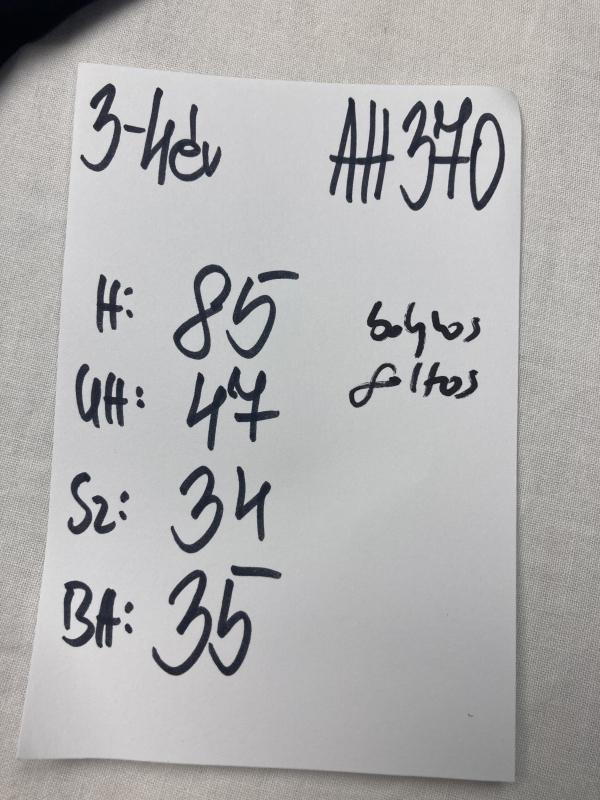 3-4év AH370
H: 85
UH: 47
Sz: 34
BH: 35
bolyhos
foltos